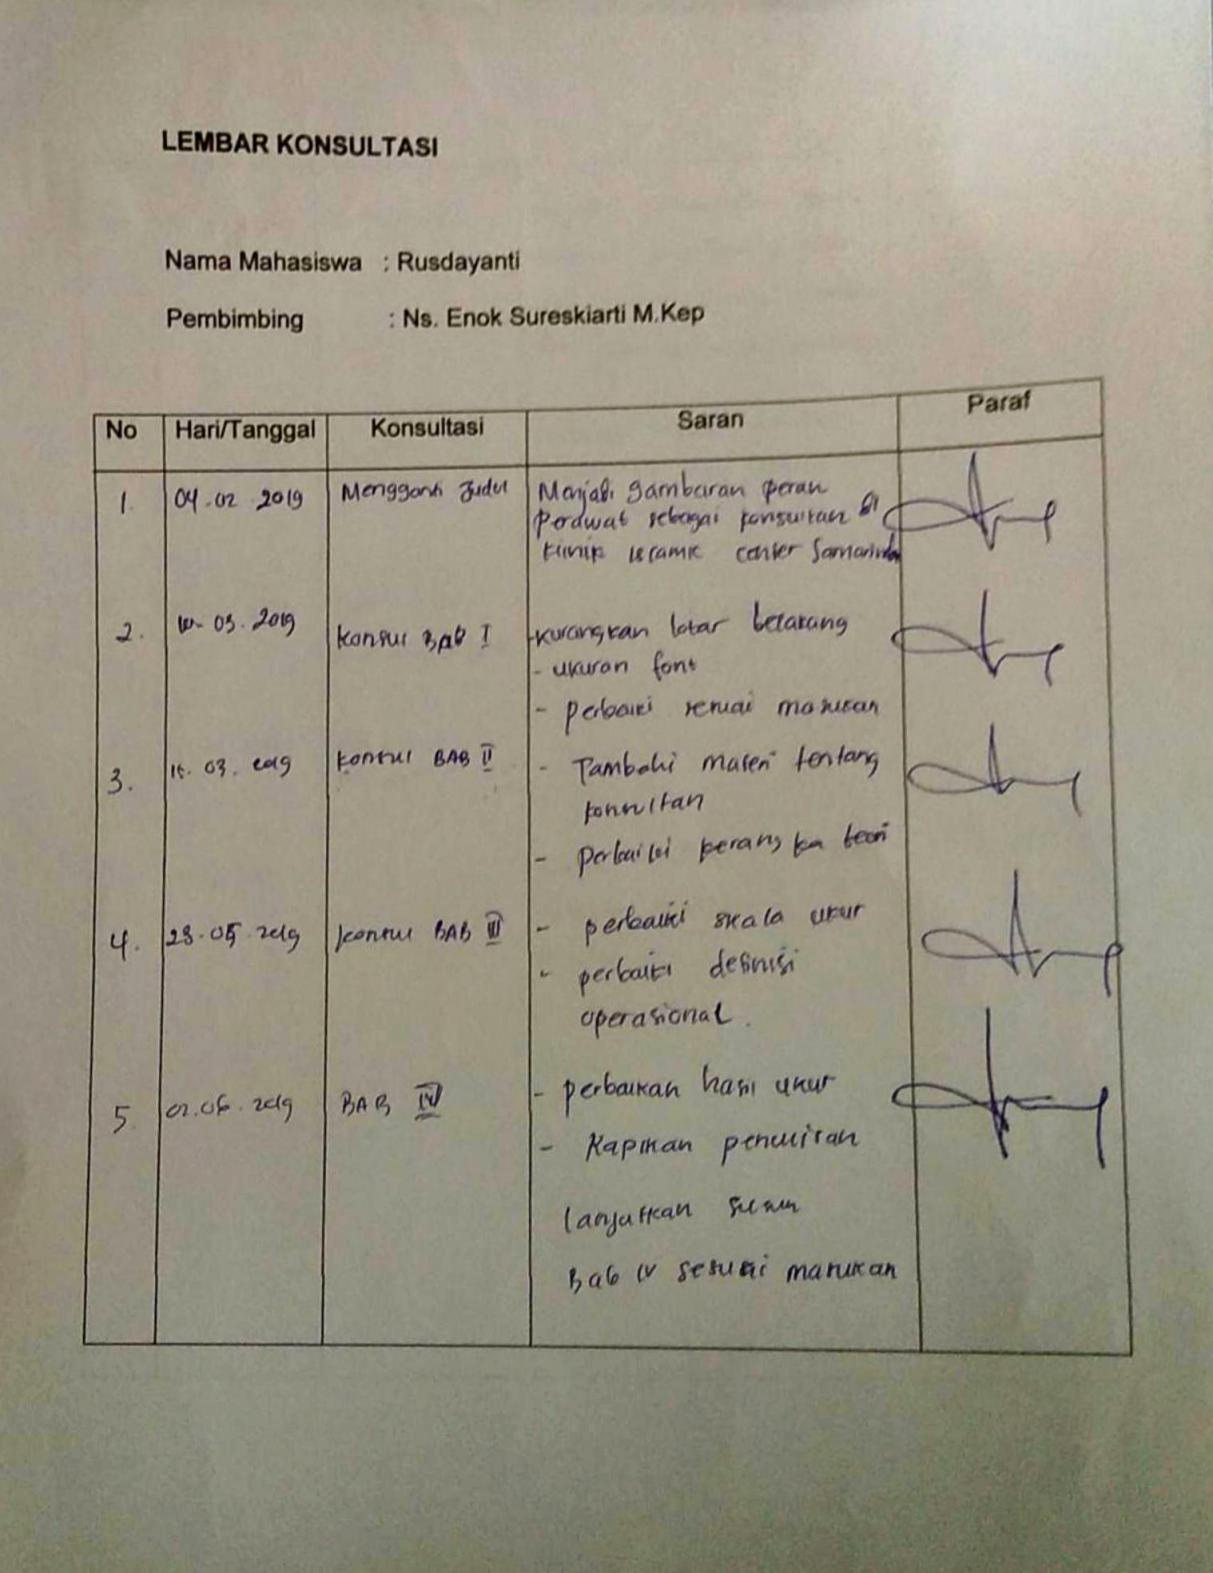 LEMBAR KONSULTASI
Nama Mahasiswa : Rusdayanti
Pembimbing : Ns. Enok Sureskiarti M.Kep
No Hari/Tanggal Konsultasi Saran Paraf
1. 04.02 2019 Mengganti Judul Menjadi gambaran peran
perawat sebagai konsultan di
klinik islamic center Samarinda
2. 03. 2019 Konsul Bab I -kurangkan latar belakang
- ukuran font
- perbaiki sesuai masukan
3. 15. 03. 2019 konsul BAB II - Tambahi materi tentang
konsultan
- Perbaiki kerangka teori
4. 28.05.2019 konsul BAB III - perbaiki skala ukur
- perbaiki definisi
operasional.
5. 02.06.2019 BAB IV - perbaikan hasil ukur
- Rapikan penulisan
lanjutkan
Bab IV sesuai masukan